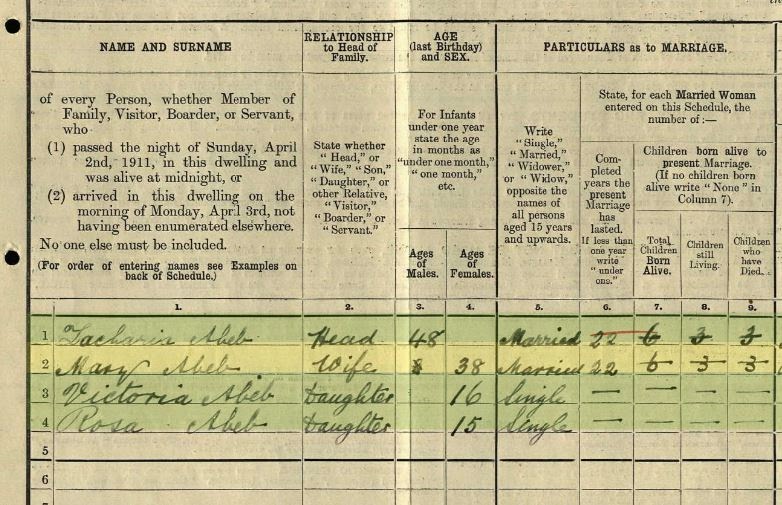 NAME AND SURNAME
of every Person, whether Member of
Family, Visitor, Boarder, or Servant,
who
(1) passed the night of Sunday, April
2nd, 1911, in this dwelling and
was alive at midnight, or
(2) arrived in this dwelling on the
morning of Monday, April 3rd, not
having been enumerated elsewhere.
No one else must be included.
(For order of entering names see Examples on
back of Schedule.)
RELATIONSHIP
to Head of
Family.
State whether
"Head," or
"Wife," "Son,"
"Daughter," or
other Relative,
"Visitor,"
"Boarder," or
"Servant."
AGE
(last Birthday)
and SEX.
For Infants
under one year
state the age
in months as
"under one month,"
"one month,"
etc.
Ages
of
Males.
Ages
of
Females.
PARTICULARS as to MARRIAGE.
Write
"Single,"
"Married,"
"Widower,"
or "Widow,"
opposite the
names of
all persons
aged 15 years
and upwards.
State, for each Married Woman
entered on this Schedule, the
number of:—
Com-
pleted
years the
present
Marriage
has
lasted.
If less than
one year
write
"under
one."
Children born alive to
present Marriage.
(If no children born
alive write "None" in
Column 7).
Total
Children
Born
Alive.
Children
still
Living.
Children
who
have
Died.
1. 2. 3. 4. 5. 6. 7. 8. 9.
1 Zacharia Abeb Head 48 Married 22 6 3 3
2 Mary Abeb Wife 38 Married 22 6 3 3
3 Victoria Abeb Daughter 16 Single — — — —
4 Rosa Abeb Daughter 15 Single — — — —
5
6
7